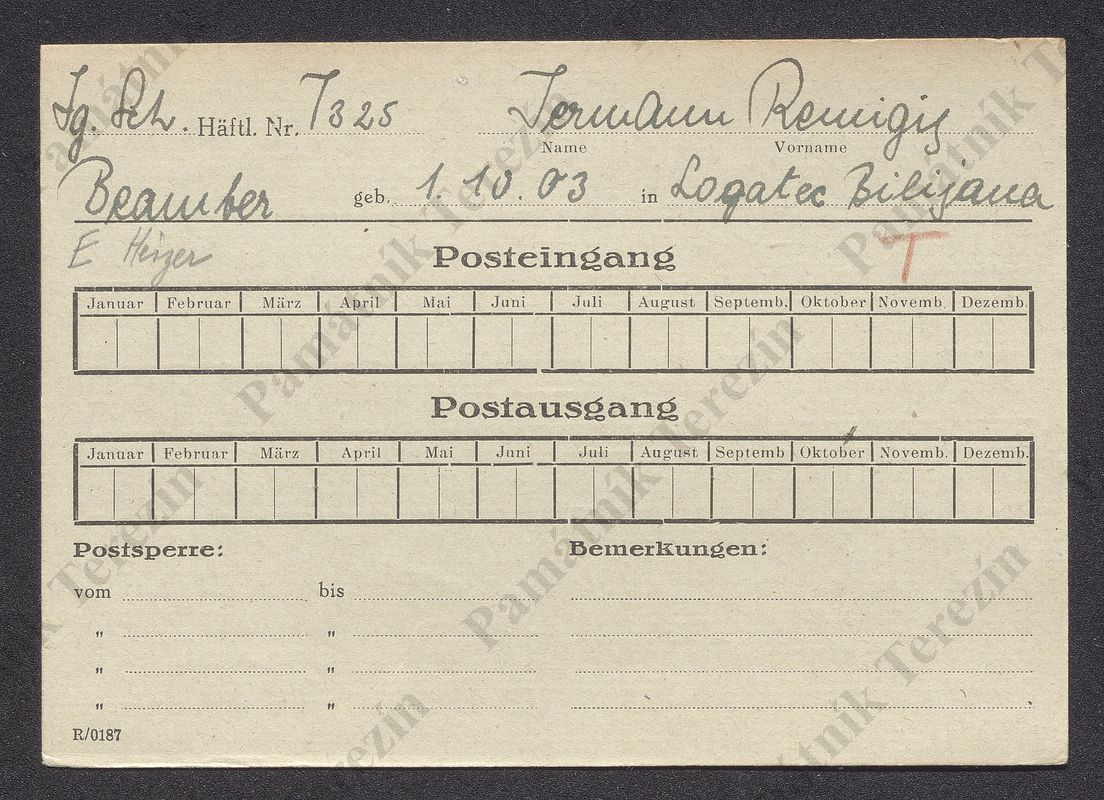 Jg. Sch. Häftl. Nr. 7325 Jermann Remigij
Name Vorname
Beamter geb. 1.10.03 in Logatec Bilijana
E Heizer
T
Posteingang
Januar Februar März April Mai Juni Juli August Septemb. Oktober Novemb. Dezemb.
Postausgang
Januar Februar März April Mai Juni Juli August Septemb Oktober Novemb. Dezemb.
Postsperre: Bemerkungen:
vom bis
" "
" "
" "
R/0187
Památník Terezín